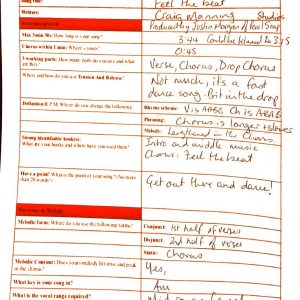 Song title: Feel the beat
Writers: Craig Manning
Produced by Justin Morgan
Max 3min 30s: How long is your song? 3:44 Could be trimmed to 3:15
Chorus within 1 min: Where's yours? 0:45
3 working parts: How many parts do you use and what are they? Verse, Chorus, Drop Chorus
Where and how do you use Tension And Release? Not much, it's a fast
dance song. Bit in the drop
Definition R.P.M. Where do you change the following:
Rhyme scheme: V is AABB Ch is ABAB
Phrasing: Chorus is longer + slower
Melody: Lengthened in the Chorus
Strong identifiable hook(s):
What are your hooks and where have you used them?
Intro and middle music
Chorus: Feel the beat
Have a point? What is the point of your song? (No more than 20 words)
Get out there and dance!
Harmony & Melody
Melodic form: Where do you use the following forms?
Conjunct: 1st half of verses
Disjunct: 2nd half of verses
Static: Chorus
Melodic Contour: Does your melody lift into, and peak in the chorus? Yes,
What key is your song in? Am
What is the vocal range required?